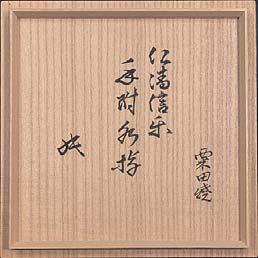 粟田焼
仁清信楽
手附水指